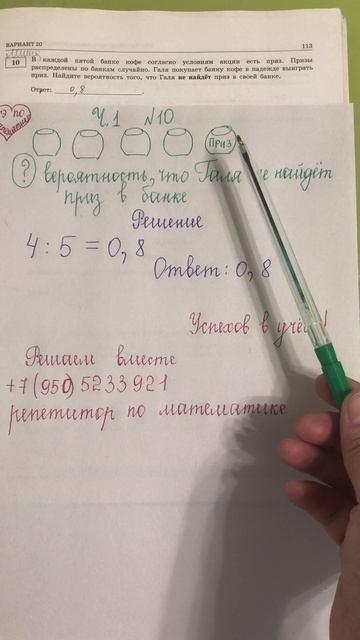 ВАРИАНТ 20
113
10
В каждой пятой банке кофе согласно условиям акции есть приз. Призы
распределены по банкам случайно. Галя покупает банку кофе в надежде выиграть
приз. Найдите вероятность того, что Галя не найдёт приз в своей банке.
Ответ: 0,8
Ч.1 №10
Приз
? вероятность, что Галя не найдёт
приз в банке
Решение
4 : 5 = 0,8
Ответ: 0,8
Успехов в
Решаем вместе
+7(950)5233921
репетитор по математике